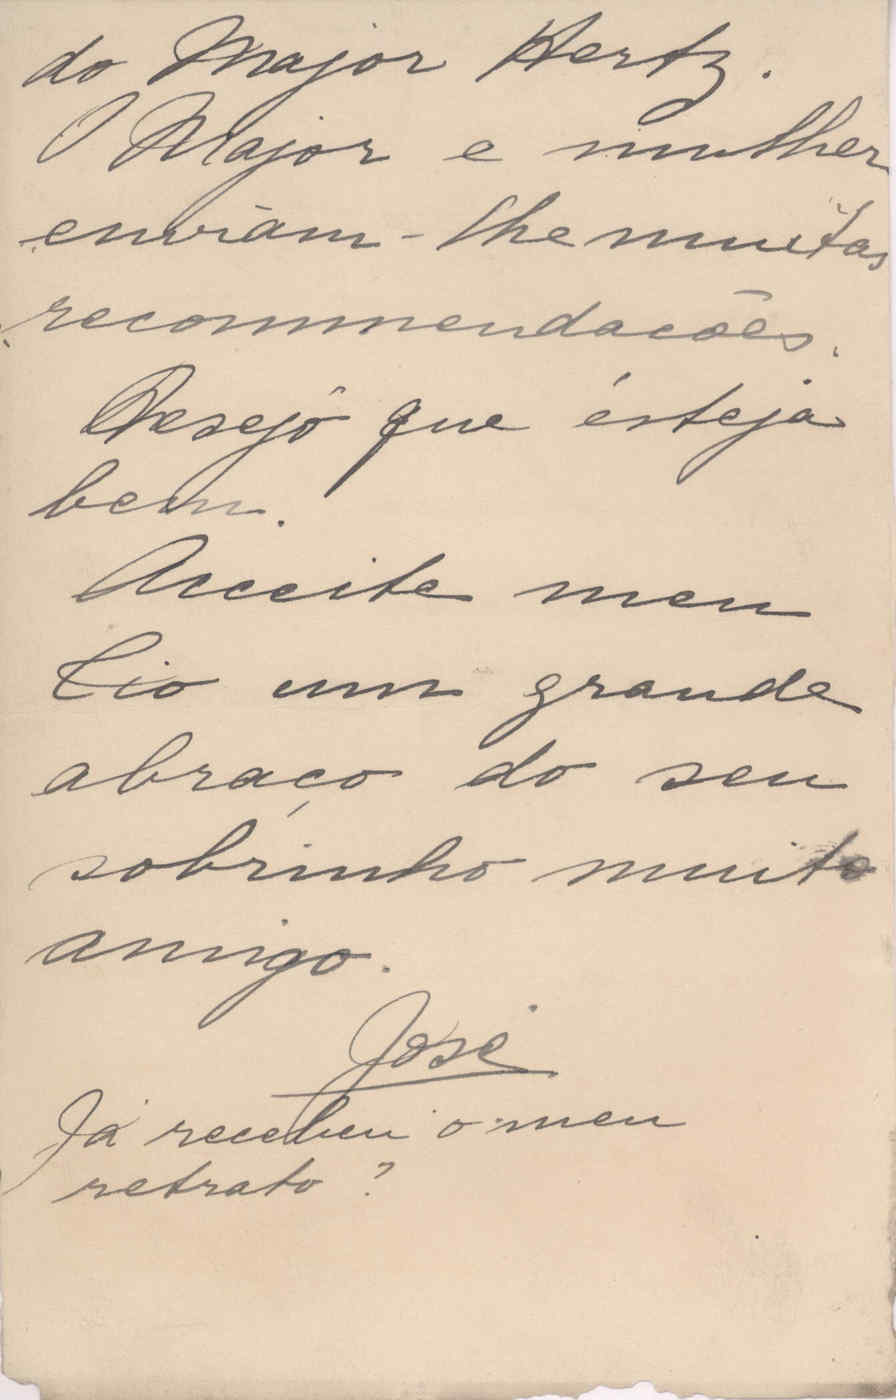 do Major Hertz.
O Major e mulher
enviam-lhe muitas
recommendacões.
Desejo que esteja
bem.
Acceite meu
Tio um grande
abraço do seu
sobrinho muito
amigo.
José
Já recebeu o meu
retrato?